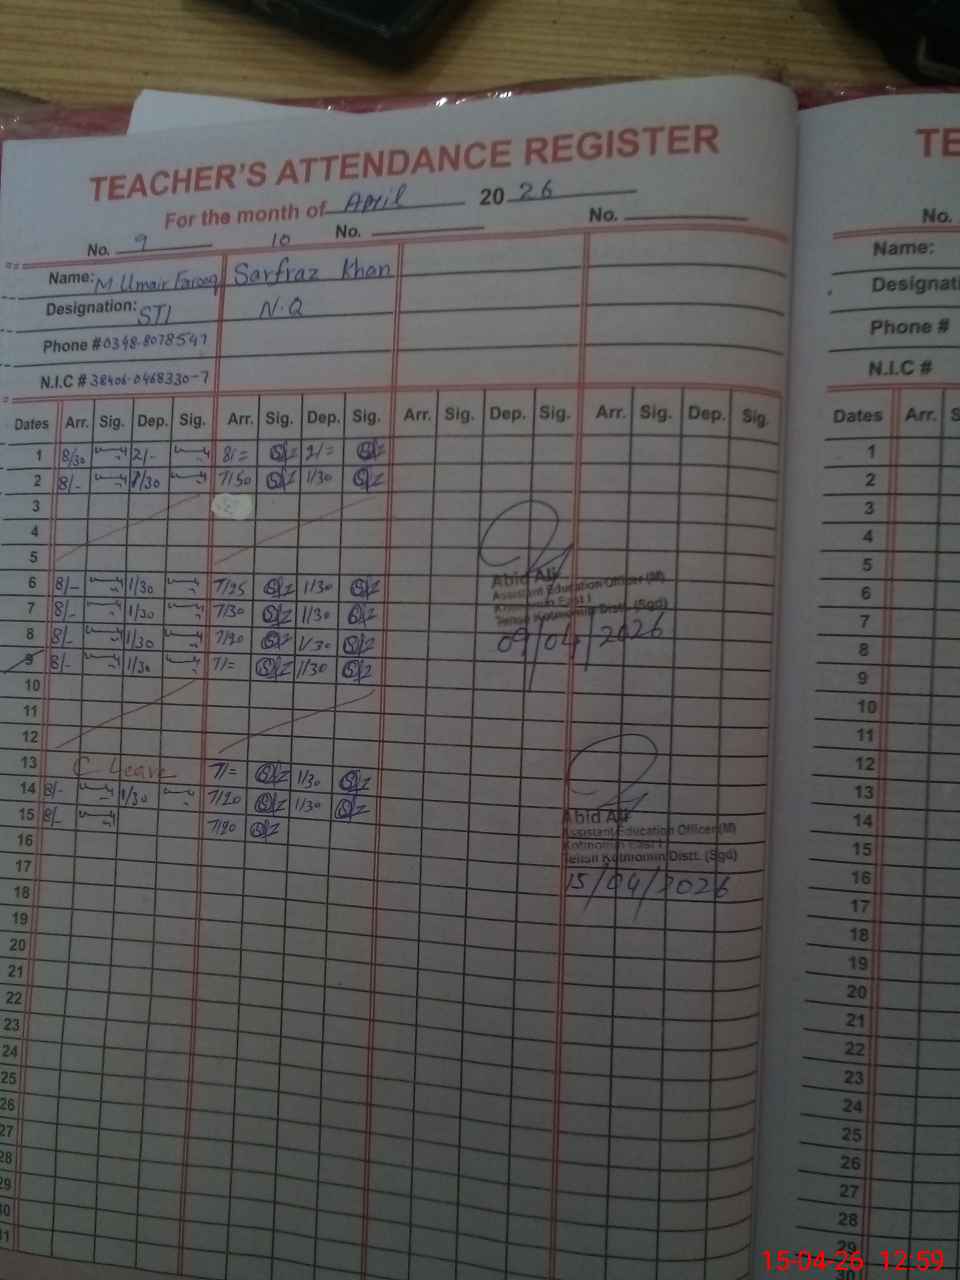 TEACHER'S ATTENDANCE REGISTER
For the month of April 2026
No. 9 10 No. No.
Name: M Umair Farooq Sarfraz Khan
Designation: STI N.Q
Phone # 0348-8078547
N.I.C # 38406-0468330-7
Dates Arr. Sig. Dep. Sig. Arr. Sig. Dep. Sig. Arr. Sig. Dep. Sig. Arr. Sig. Dep. Sig.
1 8/30 2/- 8/= 2/=
2 8/- 1/30 7/50 1/30
3
4
5
6 8/- 1/30 7/25 1/30
7 8/- 1/30 7/30 1/30
8 8/- 1/30 7/20 1/30
9 8/- 1/30 7/= 1/30
10
11
12
13 C Leave 7/= 1/30
14 8/- 1/30 7/20 1/30
15 8/- 7/20
16
17
18
19
20
21
22
23
24
25
26
27
28
29
30
31
Abid Ali
Assistant Education Officer (M)
Kotmomin East I
Tehsil Kotmomin Distt. (Sgd)
09/04/2026
Abid Ali
Assistant Education Officer (M)
Kotmomin East I
Tehsil Kotmomin Distt. (Sgd)
15/04/2026
TE
No.
Name:
Designati
Phone #
N.I.C #
Dates Arr. S
1
2
3
4
5
6
7
8
9
10
11
12
13
14
15
16
17
18
19
20
21
22
23
24
25
26
27
28
29
15-04-26 12:59